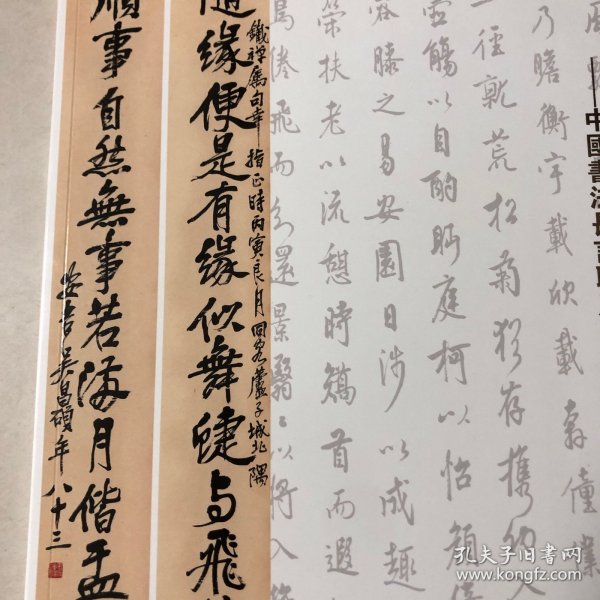 中國書法
乃瞻衡宇載欣載奔僮僕
徑就荒松菊猶存攜幼入
壺觴以自酌眄庭柯以怡顏
容膝之易安園日涉以成趣
策扶老以流憩時矯首而遐
鳥倦飛而知還景翳〻以將入
鐵禪屬句幸指正時丙寅良月同客蘆子城北隅
隨緣便是有緣似舞蜨与飛
順事自然無事若滿月偕
安吉吳昌碩年八十三
孔夫子旧书网
www.kongfz.com